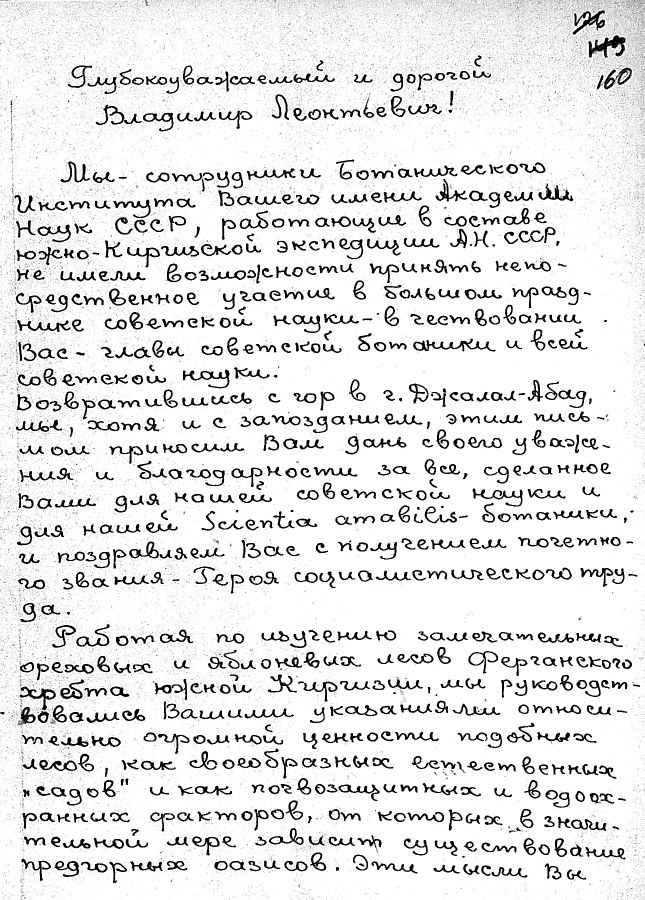 126
149
160
Глубокоуважаемый и дорогой
Владимир Леонтьевич!
Мы - сотрудники Ботанического
Института Вашего имени Академии
Наук СССР, работающие в составе
южно-Киргизской экспедиции А.Н. СССР,
не имели возможности принять непо-
средственное участие в большом празд-
нике советской науки - в чествовании
Вас - главы советской ботаники и всей
советской науки.
Возвратившись с гор в г. Джалал-Абад,
мы, хотя и с запозданием, этим пись-
мом приносим Вам дань своего уваже-
ния и благодарности за все, сделанное
Вами для нашей советской науки и
для нашей Scientia amabilis - ботаники,
и поздравляем Вас с получением почетно-
го звания - Героя социалистического тру-
да.
Работая по изучению замечательных
ореховых и яблоневых лесов Ферганского
хребта южной Киргизии, мы руководст-
вовались Вашими указаниями относи-
тельно огромной ценности подобных
лесов, как своеобразных естественных
„садов" и как почвозащитных и водоох-
ранных факторов, от которых в значи-
тельной мере зависит существование
предгорных оазисов. Эти мысли Вы